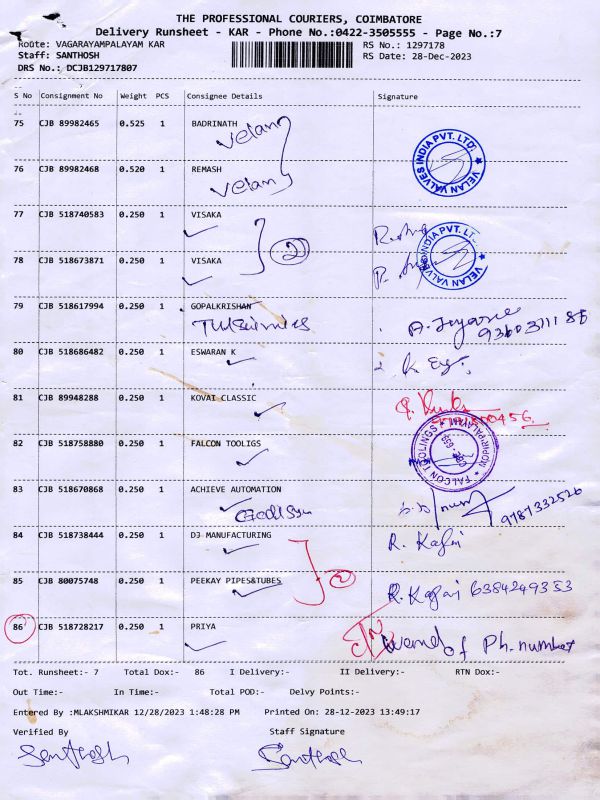 THE PROFESSIONAL COURIERS, COIMBATORE
Delivery Runsheet - KAR - Phone No.:0422-3505555 - Page No.:7
Route: VAGARAYAMPALAYAM KAR RS No.: 1297178
Staff: SANTHOSH RS Date: 28-Dec-2023
DRS No.: DCJB129717807
S No Consignment No Weight PCS Consignee Details Signature
75 CJB 89982465 0.525 1 BADRINATH
Velan
VELAN VALVES INDIA PVT. LTD.
76 CJB 89982468 0.520 1 REMASH
Velan
77 CJB 518740583 0.250 1 VISAKA
2
VELAN VALVES INDIA PVT. LTD.
78 CJB 518673871 0.250 1 VISAKA
79 CJB 518617994 0.250 1 GOPALKRISHAN
80 CJB 518686482 0.250 1 ESWARAN K
81 CJB 89948288 0.250 1 KOVAI CLASSIC
82 CJB 518758880 0.250 1 FALCON TOOLIGS
FALCON TOOLINGS
83 CJB 518670868 0.250 1 ACHIEVE AUTOMATION
9787332526
84 CJB 518738444 0.250 1 DJ MANUFACTURING
R. Kafai
2
85 CJB 80075748 0.250 1 PEEKAY PIPES&TUBES
R. Kafai 6384249353
86 CJB 518728217 0.250 1 PRIYA
of Ph. number
Tot. Runsheet:- 7 Total Dox:- 86 I Delivery:- II Delivery:- RTN Dox:-
Out Time:- In Time:- Total POD:- Delvy Points:-
Entered By :MLAKSHMIKAR 12/28/2023 1:48:28 PM Printed On: 28-12-2023 13:49:17
Verified By Staff Signature
Santhosh Santhosh